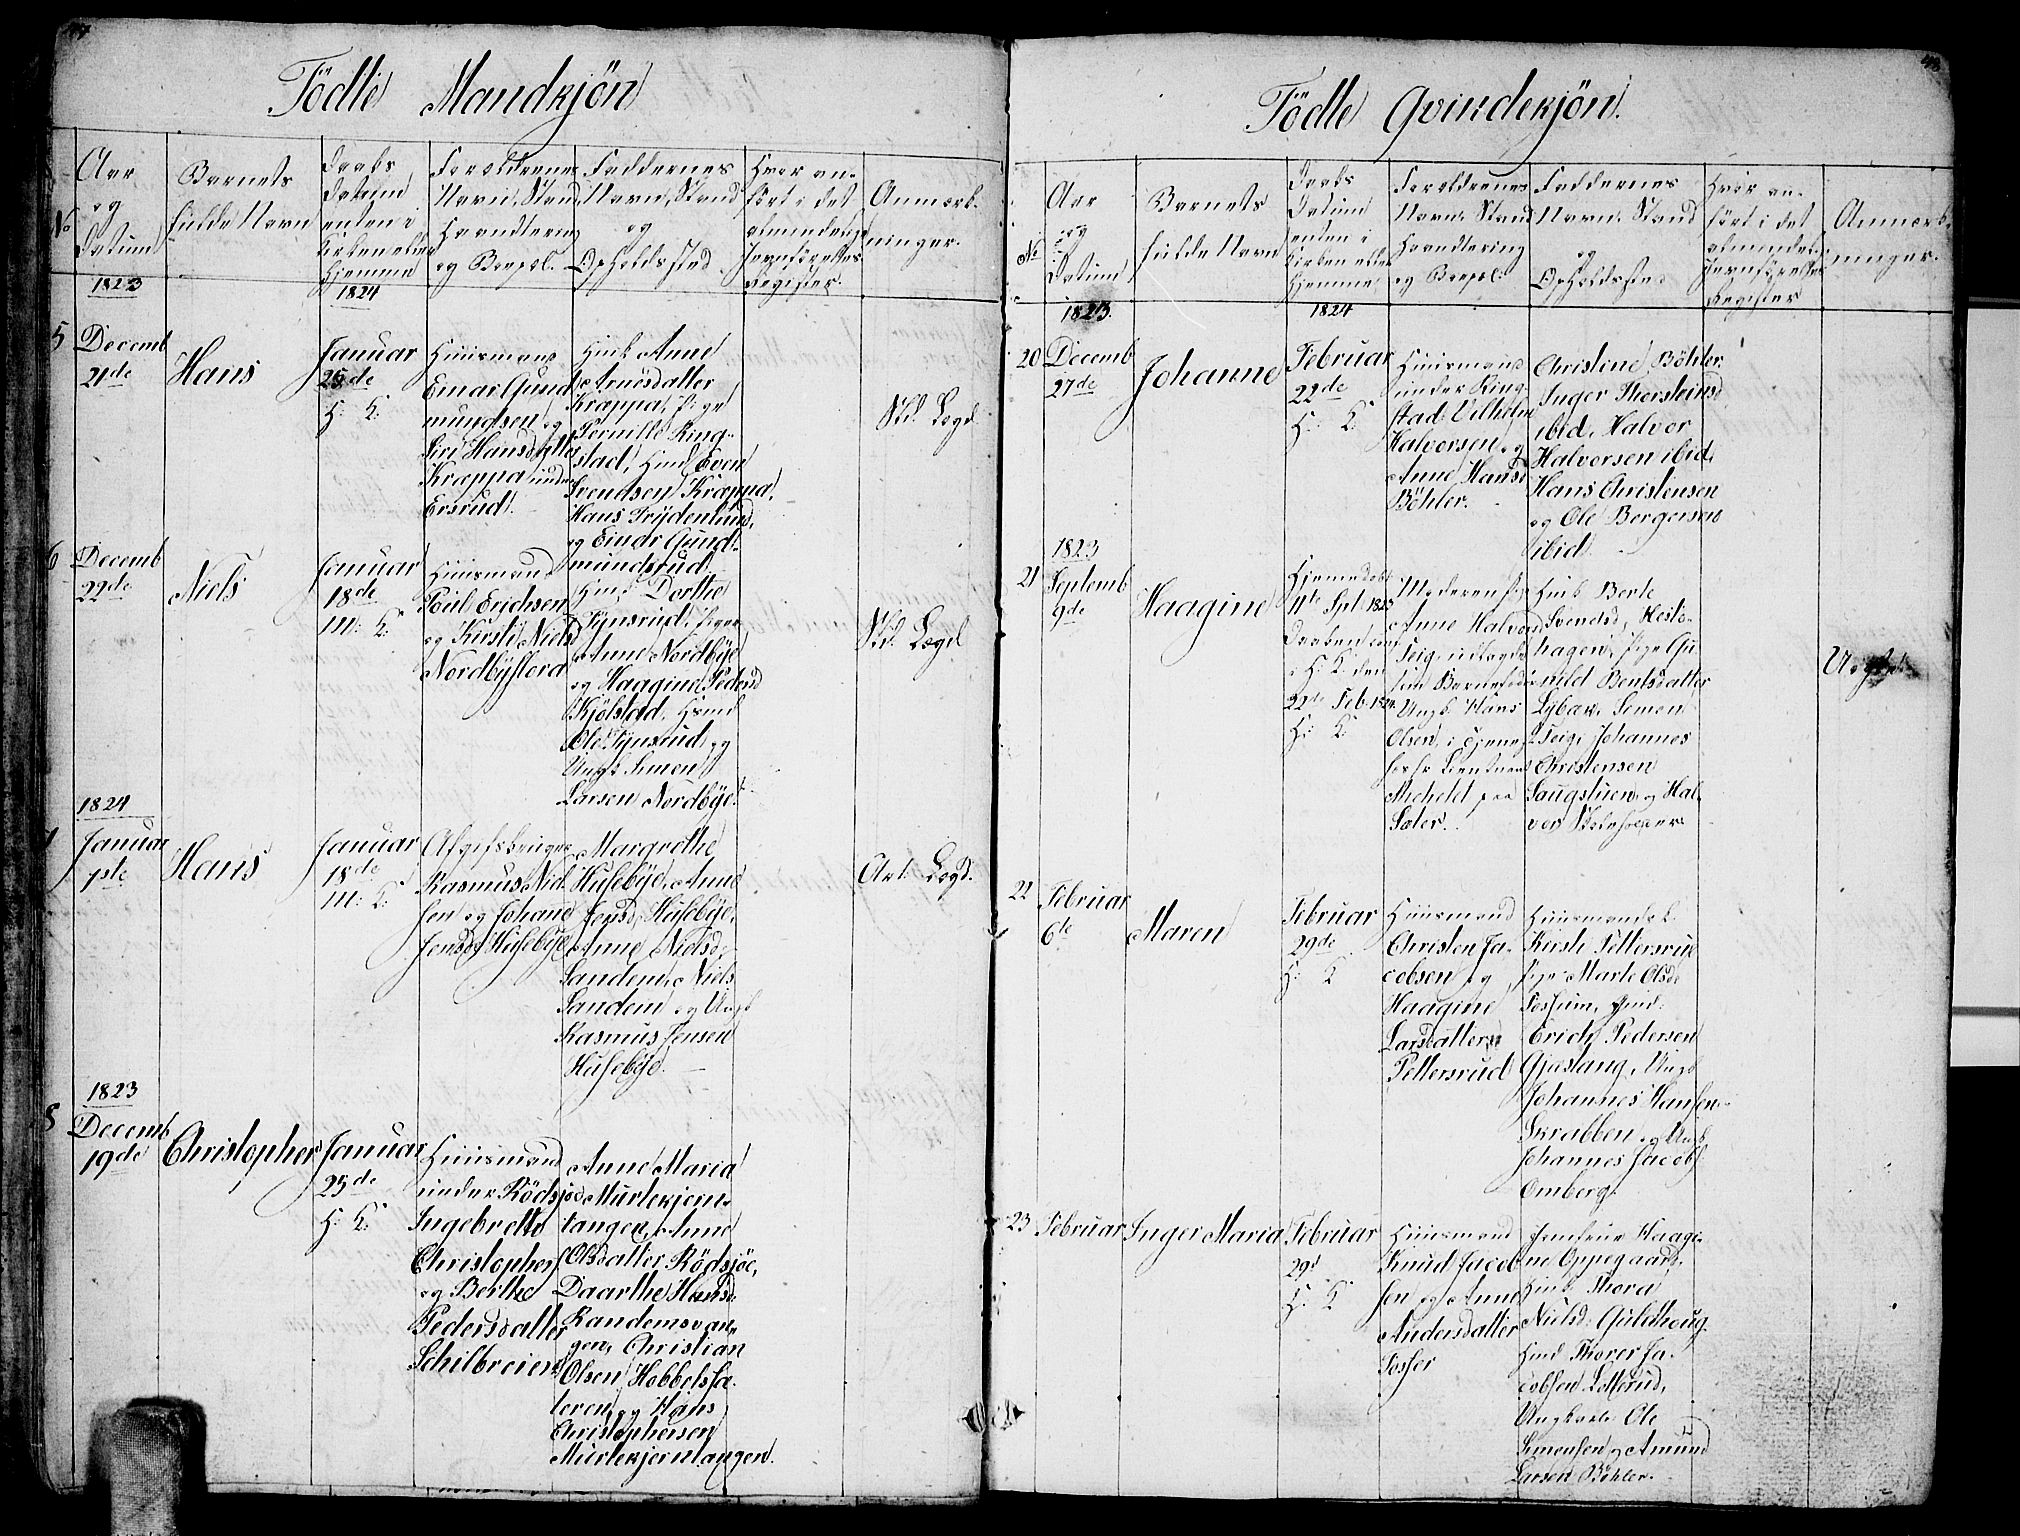 Födte Mandkjön
No
Aar
og
Datum
Barnets
fulde Navn
Daabs
Datum
enten i
Kirken eller
Hjemme
Foreldrenes
Navn, Stand
Haandtering
og Boepæl.
Faddernes
Navn, Stand
og
Opholdssted
Hvor an-
ført i det
almindelige
Jevnførelses
Register.
Anmærk-
ninger.
1823
1824
5
Decemb
21de
Hans
Januar
25de
H: K:
Huusmand
Einar Gund
mundsen og
Siri Hansdatter
Kræppa under
Ersrud.
Hmk Anne
Arnesdatter
Kræppa, Pige
Pernille Ring-
stad, Hmd Even
Svendsen Kræppa,
Hans Frydenlund,
og Einar Gund-
mundsrud.
Nd. Lægd
6
Decemb
22de
Niels
Januar
18de
M: K:
Huusmand
Poul Erichsen
og Kirsti Nielsd
Nordbyflora
Hmd Dorthe
Tynsrud, Piger
Anne Nordbye
og Haagine Pedersd
Kjölstad, Hmd
Ole Tynsrud, og
Ungk Simen
Larsen Nordbye.
Nd. Lægd
1824
7
Januar
1ste
Hans
Januar
18de
M: K:
Afgifsbruger
Rasmus Niel
sen og Johane
Jensd Husebye
Margrethe
Husebye, Anne
Jensd, Husebye,
Anne Nielsd,
Sandem, Niels
Sandem og Ungk
Rasmus Jensen
Husebye.
Art: Lægd.
1823
8
Decemb
19de
Christopher
Januar
25de
H: K:
Huusmand
under Rödsjöe
Ingebreth
Christophers
og Berthe
Pedersdatter
Schilbreien
Anne Maria
Murtekjern-
tangen, Anne
Olsdatter Rödsjöe,
Daarthe Hansd:
Randemsvan-
gen, Christian
Olsen Hobbelsta-
leren, og Hans
Christophersen
Murtekjerntangen.
Födte Qvindekjön.
No
Aar
og
Datum
Barnets
fulde Navn
Daabs
Datum
enten i
Kirken eller
Hjemme
Foreldrenes
Navn, Stand
Haandtering
og Boepæl:
Faddernes
Navn, Stand
og
Opholdsted
Hvor an-
ført i det
almindel:
Jevnførelses
Register
Anmærk-
ninger.
1823.
1824
20
Decemb
27de
Johanne
Februar
22de
H: K:
Huusmand
under Ring-
stad: Vilhelm
Halvorsen og
Anne Hansd
Böhler.
Christine Böhler:
Inger Thorsteinsd
ibid, Halvor
Halvorsen ibid,
Hans Christensen
og Ole Bergersen
ibid.
1823
21
Septemb
9de
Haagine
Hjemmedøbt
11te Spt: 1823
Daaben conf
i H: K den
22de Feb: 1824
H: K:
Moderen Pige
Anne Halvorsd
Teig, udlagde
som Barnefader
Ungk Hans
Olsen, i Tjeneste
hos Hr Lieutnant
Michelet paa
Sæter.
Hmk Berte
Svendsd, Hesto-
hagen, Pige Gu-
nild Bentsdatter
Lybæk, Simen
Teig, Johannes
Christensen
Saugstuen og Hal-
vor
Uægte
22
Februar
6te
Maren
Februar
29de
H: K
Huusmand
Christen Ja-
cobsen og
Haagine
Larsdatter
Pettersrud
Huusmandsk
Kirsti Pettersrud
Pige Marte Olsd
Fossum, Hmd:
Erich Pedersen
Gjæstang, Ungk
Johannes Hansen
Skrabben og Ungk
Johannes Jacobs
Omberg.
23
Februar
Inger Maria
Februar
29d
H: K
Huusmand
Knud Jacob
sen og Anne
Andersdatter
Fosser
Jomfrue Haagi-
ne Oppegaard,
Hmk Thora
Nielsd: Guldhoug
Hmd Thorer Ja-
cobsen Lotterud,
Ungkarle Ole
Simensen og Amund
Larsen Böhler.